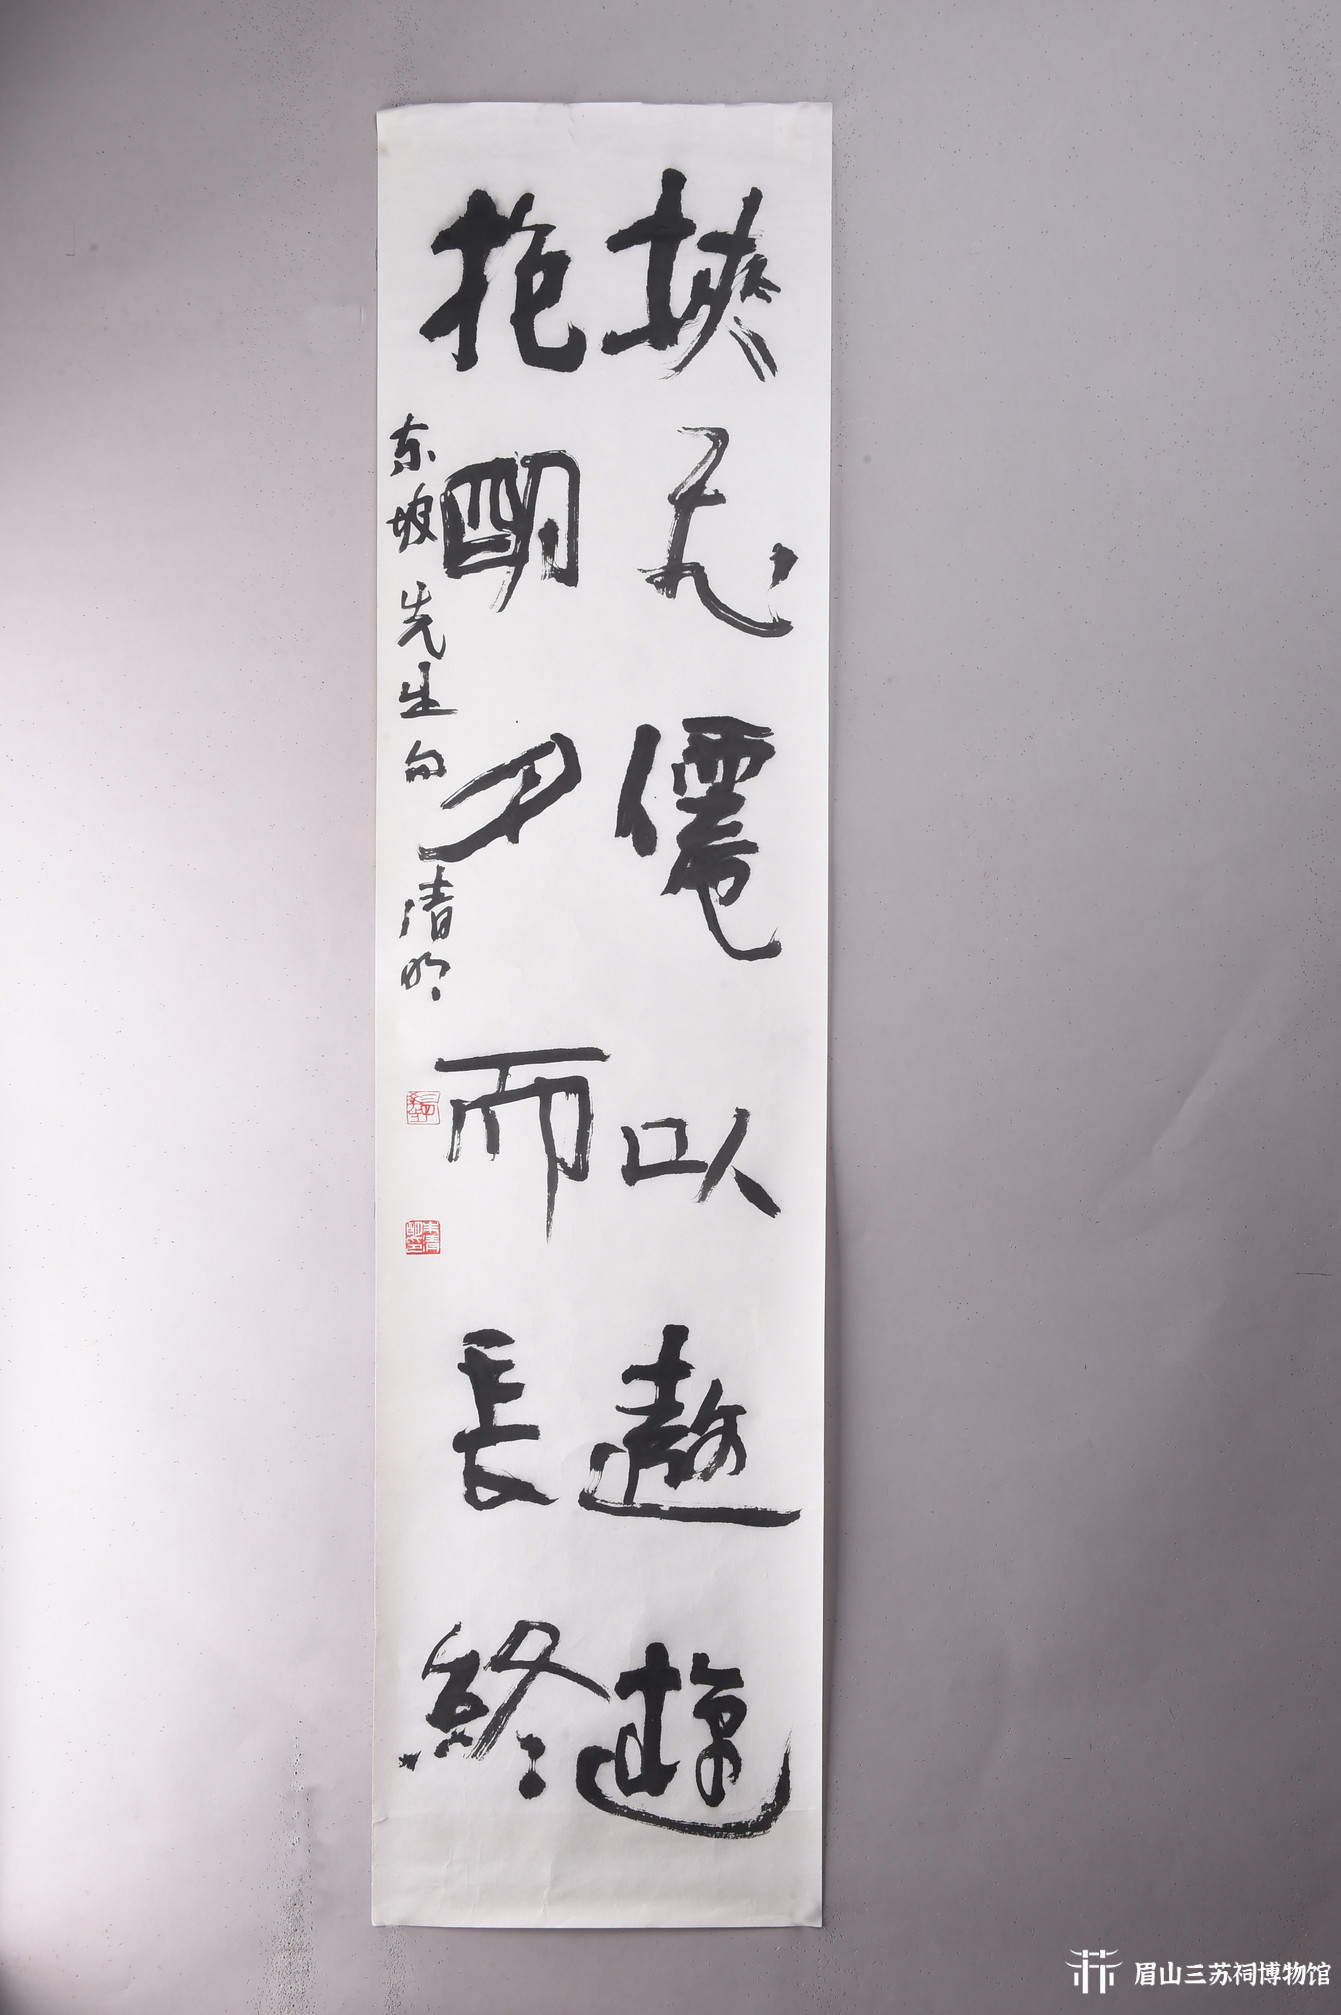 挾飞僊以遨遊
抱明月而長終
东坡先生句 清明
眉山三苏祠博物馆